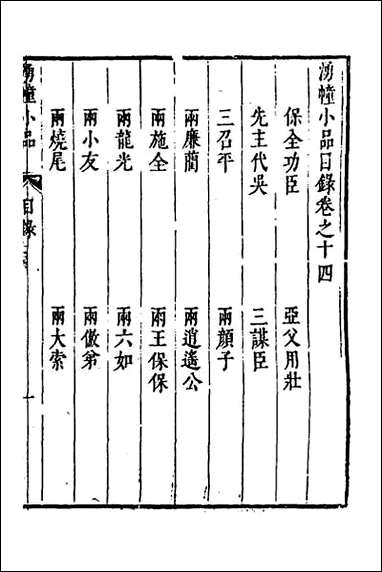 湧幢小品目錄卷之十四
保全功臣 亞父用壯
先主代吳 三謀臣
三召平 兩顏子
兩廉藺 兩逍遙公
兩施全 兩王保保
兩龍光 兩六如
兩小友 兩傲弟
兩燒尾 兩大索
湧幢小品 目錄 一